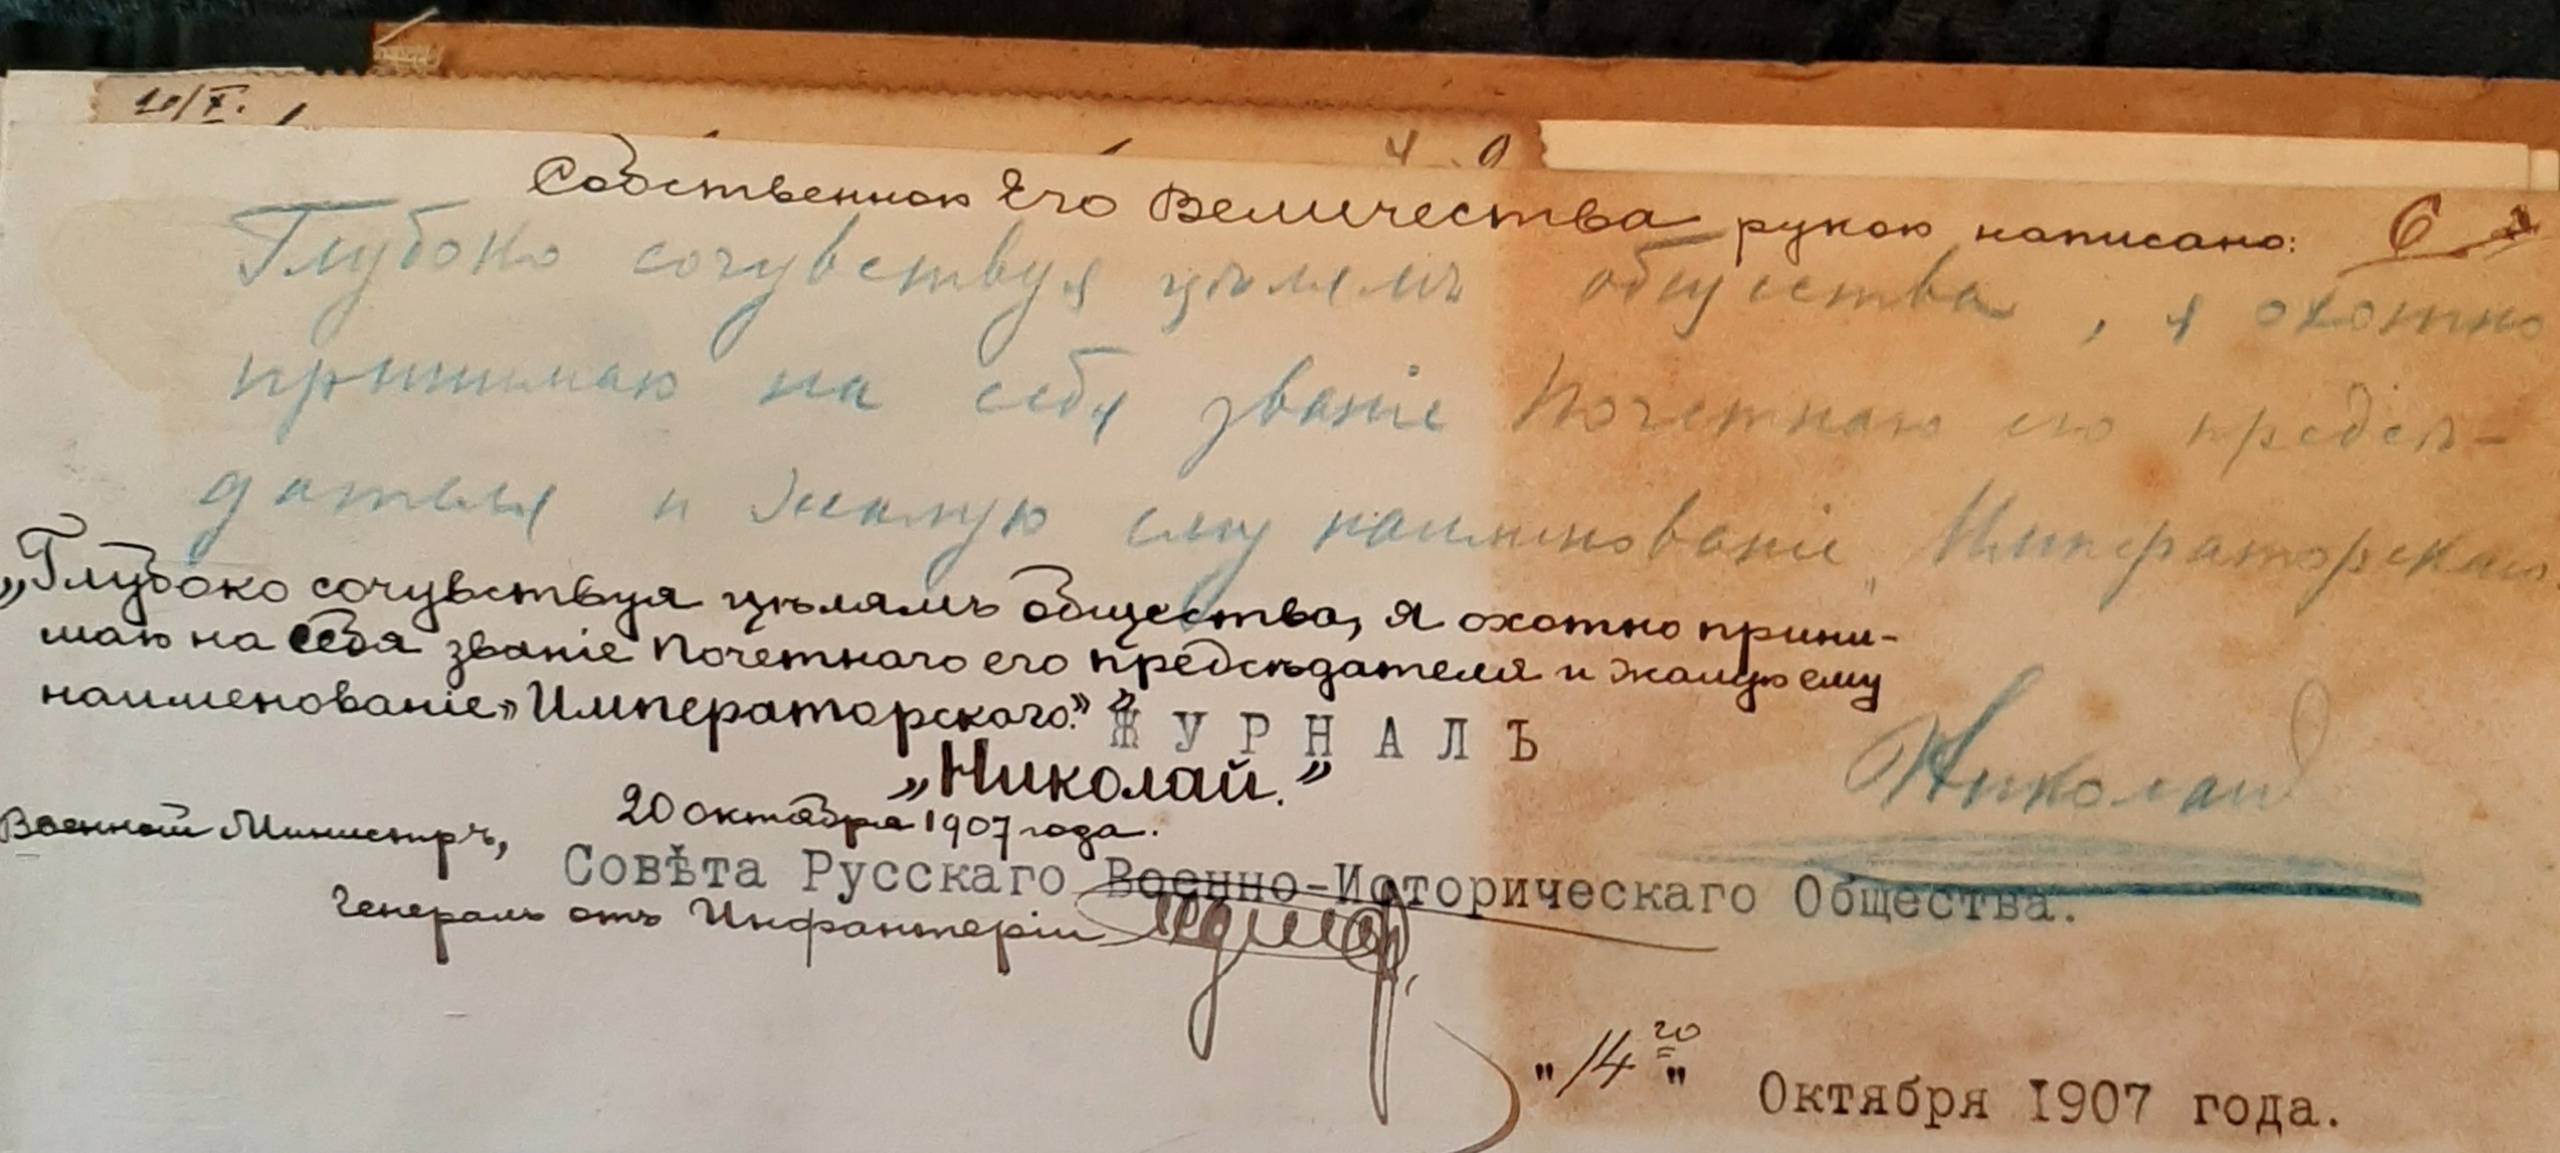 10/X.
Собственною Его Величества рукою написано:
6
Глубоко сочувствуя цѣлямъ общества, я охотно
принимаю на себя званіе Почетнаго его предсѣ-
дателя и жалую ему наименованіе „Императорскаго.
„Глубоко сочувствуя цѣлямъ общества, я охотно прини-
маю на себя званіе Почетнаго его предсѣдателя и жалую ему
наименованіе „Императорскаго."
ЖУРНАЛЪ
Николай
„Николай."
20 октября 1907 года.
Военный Министръ,
Совѣта Русскаго Военно-Историческаго Общества.
Генералъ отъ Инфантеріи
"14го" Октября 1907 года.